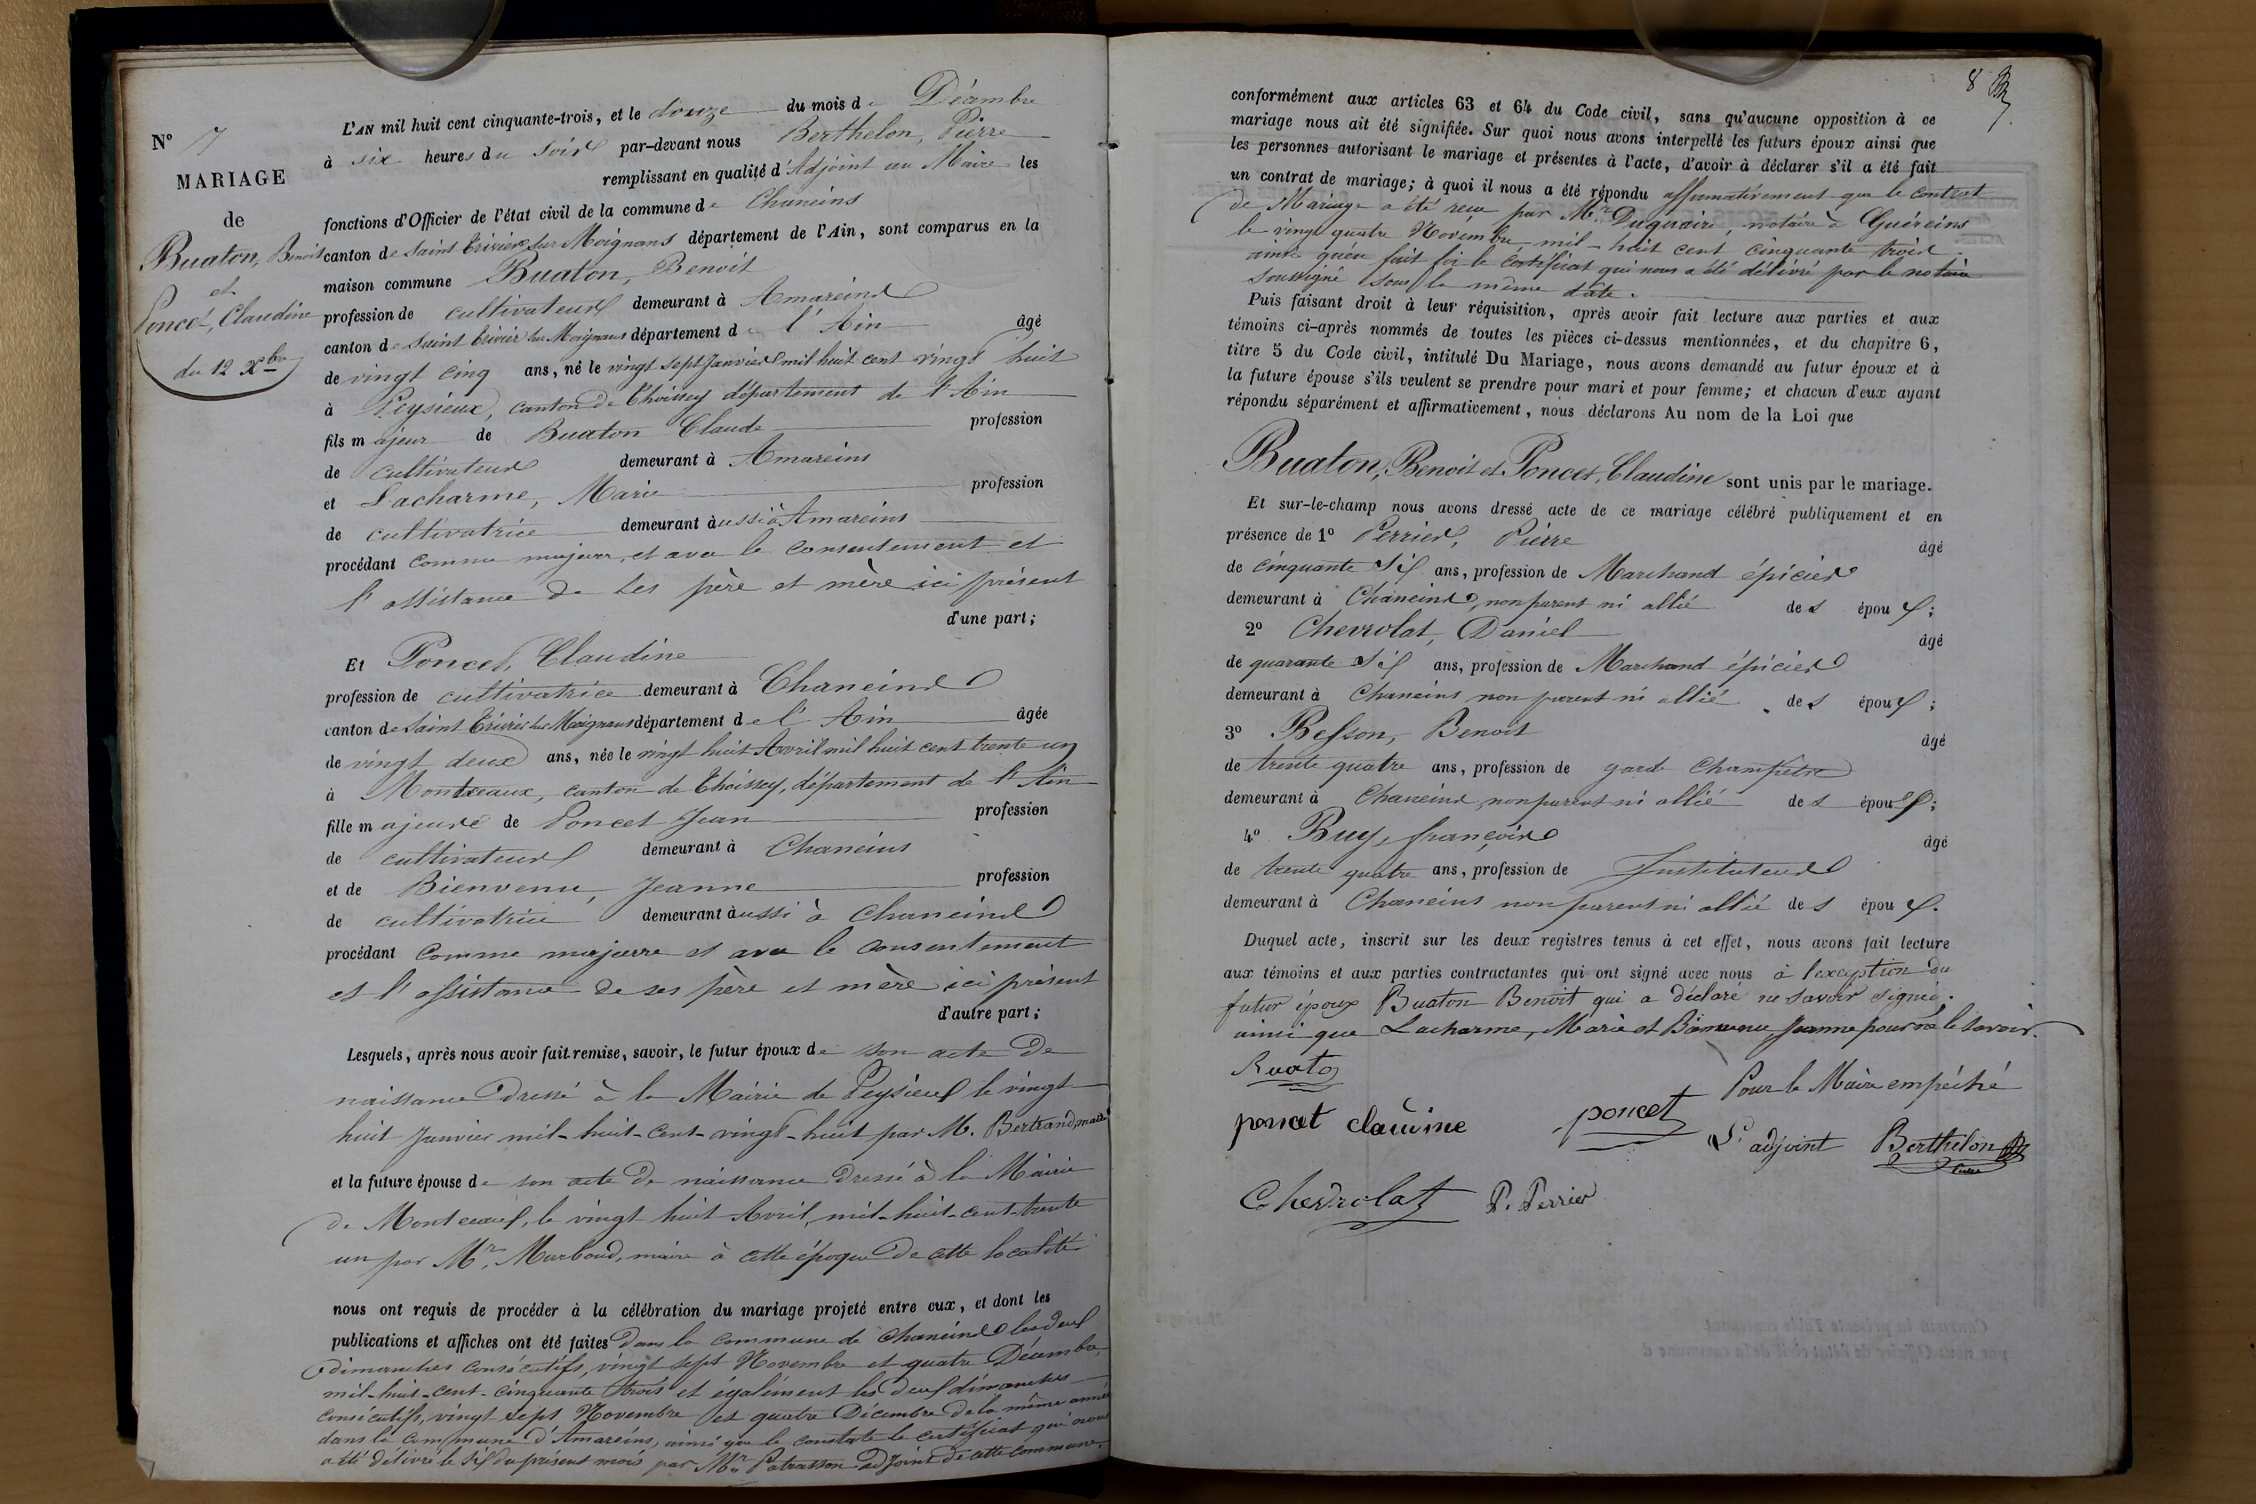 N° 7
MARIAGE
de
Buaton, Benoit
et
Poncet, Claudine
du 12 Xbre
L'AN mil huit cent cinquante-trois, et le douze du mois de Décembre
à six heures du Soir par-devant nous Berthelon, Pierre
remplissant en qualité d'Adjoint au Maire les
fonctions d'Officier de l'état civil de la commune de Chaneins
canton de Saint Trivier sur Moignans département de l'Ain, sont comparus en la
maison commune Buaton, Benoit
profession de cultivateur demeurant à Amareins
canton de Saint Trivier sur Moignans département de l'Ain âgé
de vingt cinq ans, né le vingt sept Janvier mil huit cent vingt huit
à Peysieux, canton de Thoissey département de l'Ain
fils majeur de Buaton Claude profession
de cultivateur demeurant à Amareins
et Lacharme, Marie profession
de cultivatrice demeurant aussi à Amareins
procédant comme majeur, et avec le consentement et
l'assistance de ses père et mère ici présent
d'une part;
Et Poncet, Claudine
profession de cultivatrice demeurant à Chaneins
canton de Saint Trivier sur Moignans département de l'Ain âgée
de vingt deux ans, née le vingt huit Avril mil huit cent trente un
à Montceaux, canton de Thoissey, département de l'Ain
fille majeure de Poncet Jean profession
de cultivateur demeurant à Chaneins
et de Bienvenu, Jeanne profession
de cultivatrice demeurant aussi à Chaneins
procédant comme majeure et avec le consentement
et l'assistance de ses père et mère ici présent
d'autre part;
Lesquels, après nous avoir fait remise, savoir, le futur époux de son acte de
naissance dressé à la Mairie de Peysieux le vingt
huit Janvier mil-huit-cent-vingt-huit par M. Bertrand, maire
et la future épouse de son acte de naissance dressé à la Mairie
de Montceaux, le vingt huit Avril, mil-huit-cent-trente
un par Mr. Marboud, maire à cette époque de cette localité
nous ont requis de procéder à la célébration du mariage projeté entre eux, et dont les
publications et affiches ont été faites dans la commune de Chaneins les deux
dimanches consécutifs, vingt sept Novembre et quatre Décembre,
mil-huit-cent-cinquante trois et également les deux dimanches
consécutifs, vingt sept Novembre et quatre Décembre de la même année
dans la commune d'Amareins, ainsi que le constate le certificat qui nous
a été délivré le six du présent mois par Mr. Patrasson adjoint de cette commune.
8
conformément aux articles 63 et 64 du Code civil, sans qu'aucune opposition à ce
mariage nous ait été signifiée. Sur quoi nous avons interpellé les futurs époux ainsi que
les personnes autorisant le mariage et présentes à l'acte, d'avoir à déclarer s'il a été fait
un contrat de mariage; à quoi il nous a été répondu affirmativement que le contrat
de Mariage a été reçu par Mr. Duquaire, notaire à Guéreins
le vingt quatre Novembre, mil-huit cent cinquante trois
ainsi qu'en fait foi le certificat qui nous a été délivré par le notaire
soussigné sous la même date.
Puis faisant droit à leur réquisition, après avoir fait lecture aux parties et aux
témoins ci-après nommés de toutes les pièces ci-dessus mentionnées, et du chapitre 6,
titre 5 du Code civil, intitulé Du Mariage, nous avons demandé au futur époux et à
la future épouse s'ils veulent se prendre pour mari et pour femme; et chacun d'eux ayant
répondu séparément et affirmativement, nous déclarons Au nom de la Loi que
Buaton, Benoit et Poncet, Claudine sont unis par le mariage.
Et sur-le-champ nous avons dressé acte de ce mariage célébré publiquement et en
présence de 1° Perrier, Pierre âgé
de cinquante six ans, profession de Marchand épicier
demeurant à Chaneins, non parent ni allié des époux;
2° Chevrolat, Daniel âgé
de quarante six ans, profession de Marchand épicier
demeurant à Chaneins non parent ni allié des époux;
3° Besson, Benoit âgé
de trente quatre ans, profession de garde Champêtre
demeurant à Chaneins non parent ni allié des époux;
4° Buy, françois âgé
de trente quatre ans, profession de Instituteur
demeurant à Chaneins non parent ni allié des époux.
Duquel acte, inscrit sur les deux registres tenus à cet effet, nous avons fait lecture
aux témoins et aux parties contractantes qui ont signé avec nous à l'exception du
futur époux Buaton Benoit qui a déclaré ne savoir signé.
ainsi que Lacharme, Marie et Bienvenu, Jeanne pour ne le savoir.
Buato
Pour le Maire empêché
poncet claudine poncet
L'adjoint Berthelon
Chevrolat P. Perrier